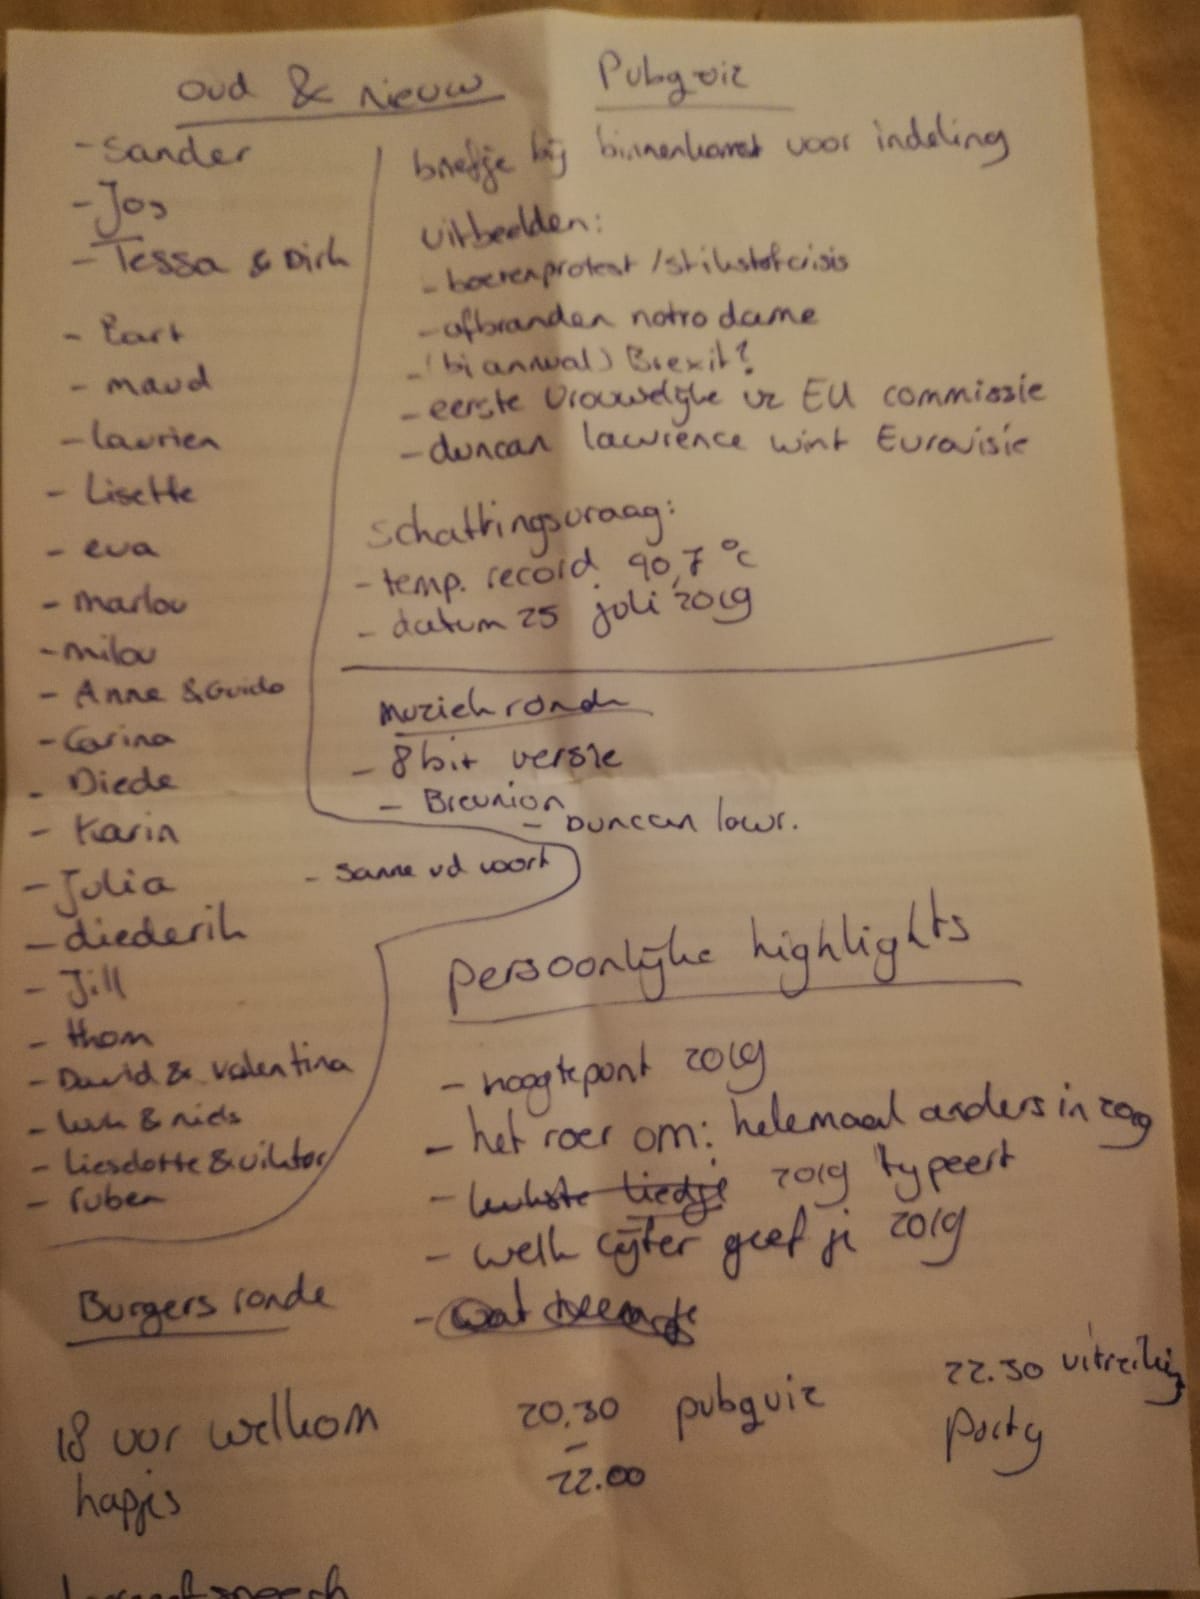 oud & nieuw
- Sander
- Jos
- Tessa & Dirk
- Bart
- maud
- laurien
- Lisette
- eva
- marlou
- milou
- Anne & Guido
- Carina
- Diede
- Karin
- Julia
- Sanne vd voort
- diederik
- Jill
- thom
- David & valentina
- & niels
- Liesdotte & viktor
- ruben
Pubquiz
briefje bij binnenkomst voor indeling
uitbeelden:
- boerenprotest / stikstofcrisis
- afbranden notro dame
- (bi annual) Brexit?
- eerste vrouwelijke vz EU commissie
- duncan lawrence wint Eurovisie
Schattingsvraag:
- temp. record 40,7 °C
- datum 25 juli 2019
muziekronde
- 8bit versie
- Breunion
- Duncan lawr.
persoonlijke highlights
- hoogtepunt 2019
- het roer om: helemaal anders in
- leukste liedje 2019 typeert
- welk cijfer geef je 2019
- wat
Burgers ronde
18 uur welkom
hapjes
20.30 pubquiz
-
22.00
22.30 uitreiking
party
speech